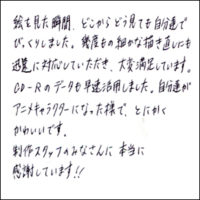 絵を見た瞬間、どこからどう見ても自分達で
びっくりしました。幾度もの細かな描き直しにも
迅速に対応していただき、大変満足しています。
CD-Rのデータも早速活用しました。自分達が
アニメキャラクターになった様で、とにかく
かわいいです。
制作スタッフのみなさんに本当に
感謝しています!!